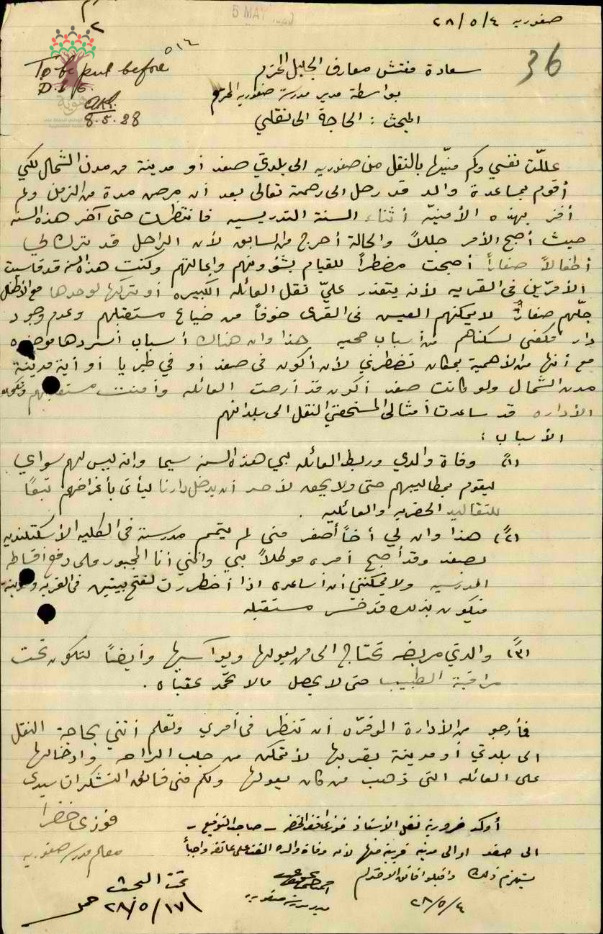 صفوريه ٢٨/٥/٤
To be put before
D.I.G.
8.5.28
36
سعادة مفتش معارف الجليل المحترم
بواسطة مدير مدرسة صفوريه المحترم
المبحث : الحاجة الى نقلي
عللت نفسي وكم منيتها بالنقل من صفوريه الى بلدتي صفد أو مدينة من مدن الشمال لكي
أقوم بمساعدة والد قد رحل الى رحمة تعالى بعد أن مرض مدة من الزمن ولم
أفز بهذه الأمنية أثناء السنة التدريسيه فانتظرت حتى آخر هذه السنه
حيث أصبح الأمر جللاً والحالة أحرج من السابق لأن الراحل قد ترك لي
أطفالاً صغاراً أصبحت مضطراً للقيام بشؤونهم واعالتهم وكنت هذه السنه قد قاسيت
الأمرّين في القريه لأنه يتعذر عليّ نقل العائله الكبيره أو تركها لوحدها مع الأطفال
جلّهم صغار لا يمكنهم العيش في القرى خوفاً من ضياع مستقبلهم وعدم وجود
دار تكفي لسكناهم من أسباب صحيه هذا وان هناك أسباب أسردها موجزه
مع أنها من الأهمية بمكان تضطرني لأن أكون في صفد أو في طبريا أو أية مدينة
مدن الشمال ولو كانت صفد أكون قد أرحت العائله وأمنت مستقبلهم
الأداره قد ساعدت أمثالي المستحقين النقل الى بلدانهم
الأسباب :
(١) وفاة والدي وربط العائله بي هذه السنه سيما وانه ليس لهم سواي
ليقوم بمطاليبهم حتى ولا يحق لأحد أن يدخل دارنا ليأتي بأغراضهم تبعًا
للتقاليد الحضريه والعائليه
(٢) هذا وان لي أخاً أصغر مني لم يتمم مدرسة في الكليه الأسكتلنديه
بصفد وقد أصبح أمره موكلاً بي وانني أنا المجبور على دفع أقساطه
المدرسيه ولا يمكنني أن أساعده اذا أضطررت لفتح بيتين في القريه والمدينه
فيكون بذلك قد خسر مستقبله
(٣) والدتي مريضه تحتاج الى من يعولها ويواسيها وأيضاً لتكون تحت
مراقبة الطبيب حتى لا يحصل مالا تحمد عقباه .
فأرجو من الأدارة الموقره أن تنظر في أمري وتعلم أنني بحاجة النقل
الى بلدتي أو مدينة بقربها لأتمكن من جلب الراحه وادخالها
على العائله التي ذهب من كان يعولها ولكم مني فائق التشكرات سيدي
فوزي خضرا
معلم مدرسة صفوريه
أؤكد ضرورية نقل الأستاذ فوزي خضرا – صاحب التوقيع –
الى صفد او الى مدينه قريبة منها لأن وفاة والده القت على عاتقه واجباً
يستلزم ذلك واقبلوا فائق الاحترام
٢٨/٥/٤
مدير مدرسة صفوريه
تحت البحث
٢٨/٥/١٧